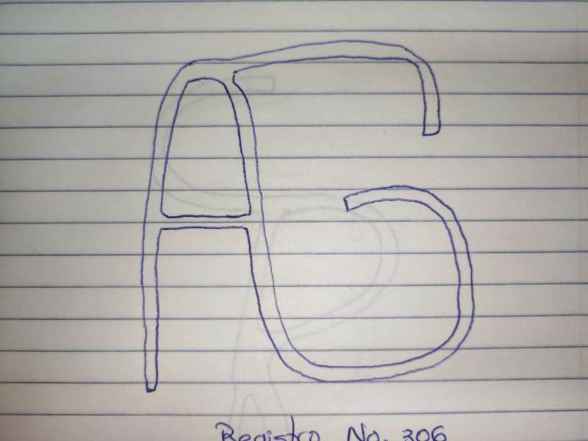 AG
Registro No. 306